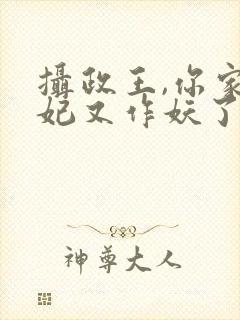 攝政王,你家
妃又作妖了
神尊大人